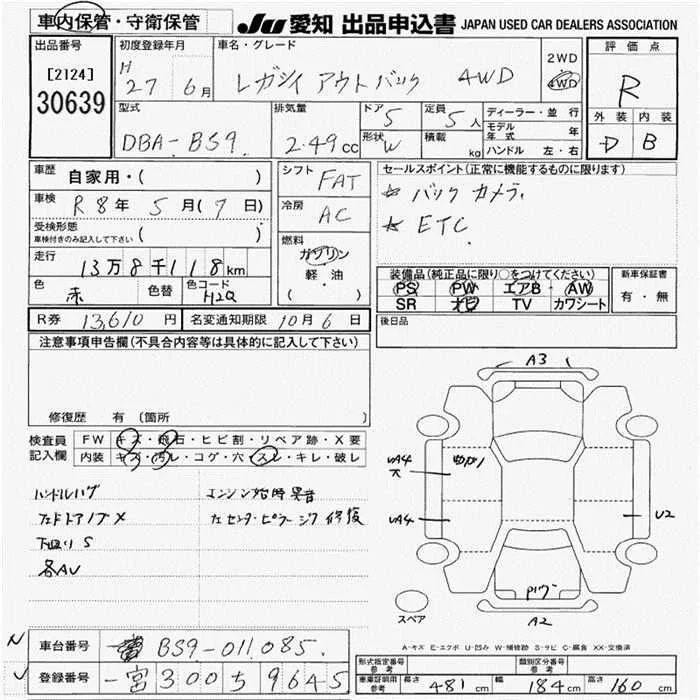 車内保管・守衛保管
JU 愛知 出品申込書 JAPAN USED CAR DEALERS ASSOCIATION
出品番号
[2124]
30639
初度登録年月
H 27 6月
車名・グレード
レガシィ アウトバック 4WD
2WD
4WD
評価点
R
外装 内装
D B
型式
DBA-BS9
排気量
2.49cc
ドア 5
形状 W
定員 5人
積載 kg
ディーラー・並行
モデル年式 年
ハンドル 左・右
車歴
自家用・( )
車検
R8年 5月(7日)
受検形態
車検付きのみ記入して下さい ( )
走行
13万8千118km
色 赤
色替
色コード H2Q
シフト FAT
冷房 AC
燃料
ガソリン
軽・油
( ・ )
セールスポイント(正常に機能するものに限ります)
☆ バックカメラ
☆ ETC
装備品(純正品に限り○をつけてください)
PS PW エアB AW
SR ナビ TV カワシート
新車保証書
有・無
R券 13,610円
名変通知期限 10月6日
後日品
注意事項申告欄(不具合内容等は具体的に記入して下さい)
修復歴 有 〔箇所 〕
検査員記入欄
FW キズ・飛石・ヒビ割・リペア跡・X要
内装 キズ・汚レ・コゲ・穴・スレ・キレ・破レ
ハンドルハゲ
エンジン始時異音
下廻りS
各AU
A3
UA4
UA4
U2
A2
スペア
A-キズ E-エクボ U-凹み W-補修跡 S-サビ C-腐食 XX-交換済
車台番号
BS9-011085
登録番号
一宮300 ち 9645
形式指定番号 参考
類別区分番号 参考
車庫証明用 参考
長さ 481cm
幅 184cm
高さ 160cm